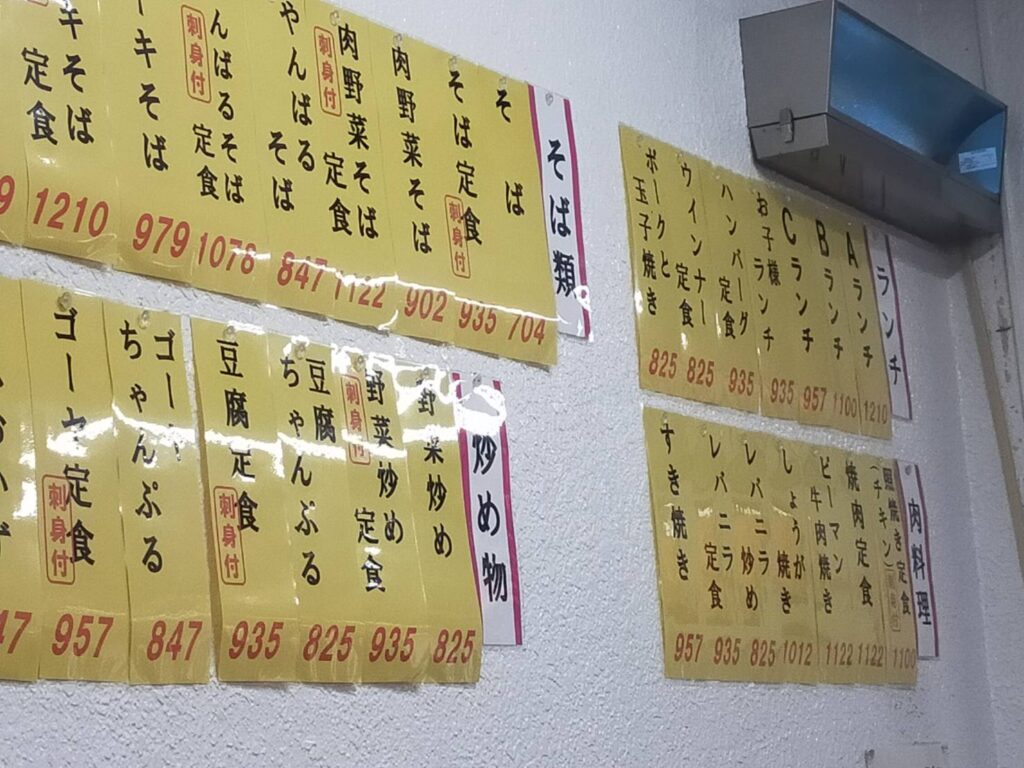 そば類
そば
704
そば定食
刺身付
935
肉野菜そば
902
肉野菜そば
定食
刺身付
1122
やんばる
そば
847
んばるそば
定食
刺身付
1078
キそば
979
そば
定食
1210
炒め物
野菜炒め
825
野菜炒め
定食
刺身付
935
豆腐
ちゃんぷる
825
豆腐定食
刺身付
935
ちゃんぷる
847
ゴーヤ定食
刺身付
957
47
ランチ
Aランチ
1210
Bランチ
1100
Cランチ
957
お子様
ランチ
935
ハンバーグ
定食
935
ウインナー
定食
825
ポークと
玉子焼き
825
肉料理
照焼き定食
(チキン)
1100
焼肉定食
1122
ピーマン
牛肉焼き
1122
しょうが
焼き
1012
レバニラ
炒め
825
レバニラ
定食
935
すき焼き
957